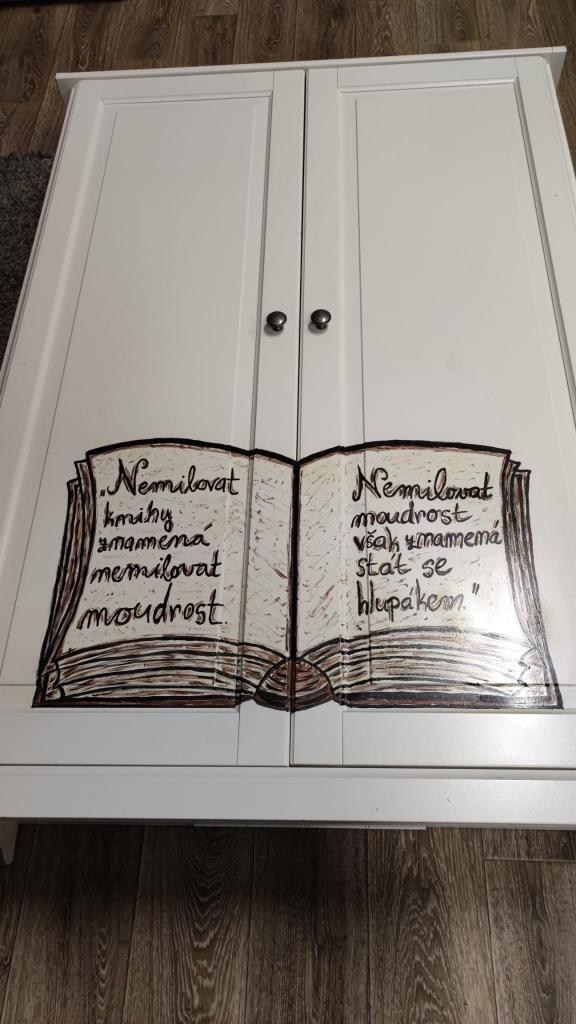 „Nemilovat
knihy
znamená
nemilovat
moudrost.
Nemilovat
moudrost
však znamená
stát se
hlupákem."